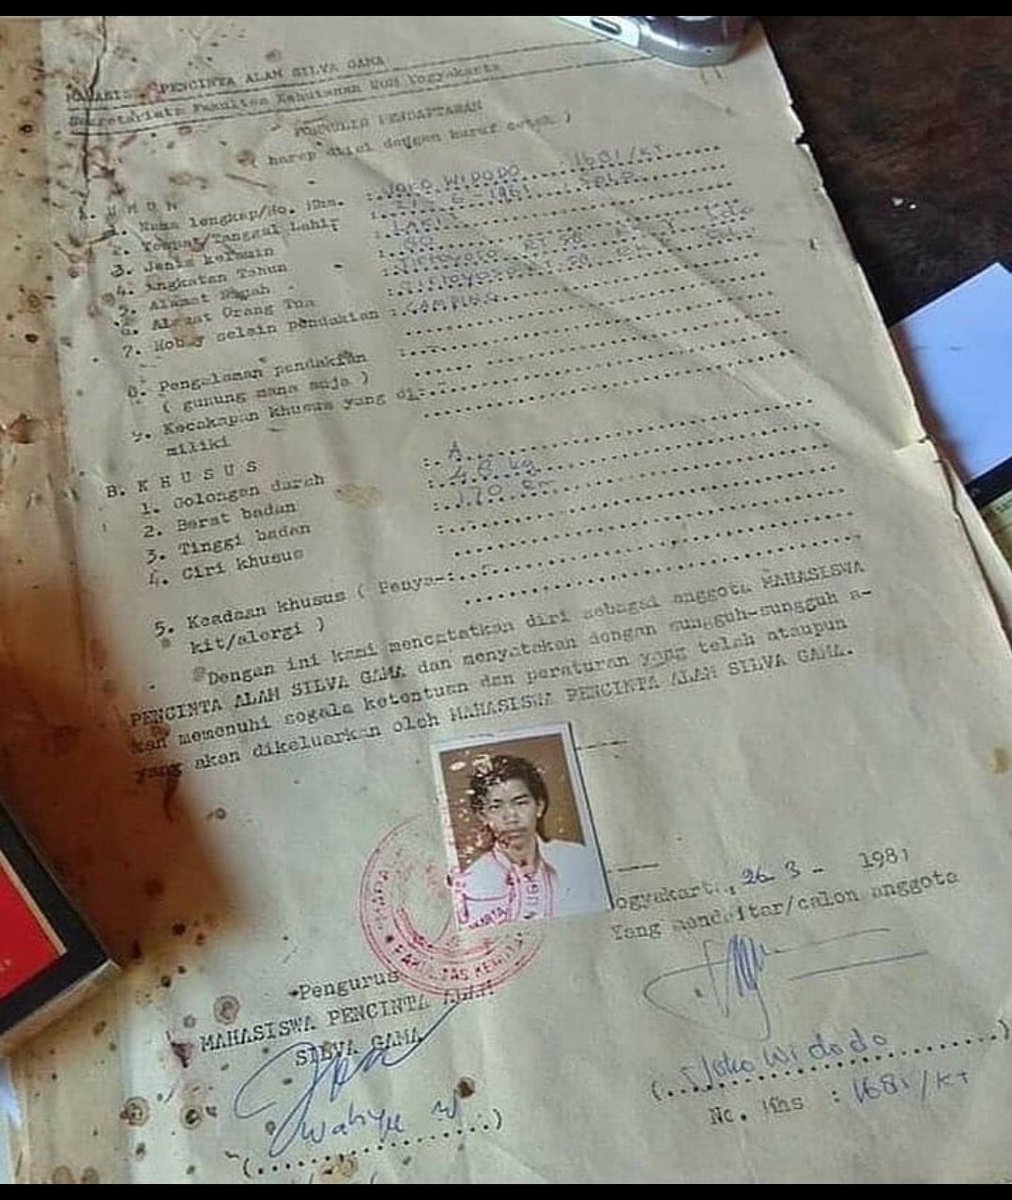 PENCINTA ALAM SILVA GAMA
Sekretariat: Fakultas Kehutanan UGM Yogyakarta
FORMULIR PENDAFTARAN
( harap diisi dengan huruf cetak )
A. U M U M
1. Nama lengkap/No. Mhs. : JOKO WIDODO 1681/KT
2. Tempat/Tanggal Lahir : 21 - 6 - 1961 SOLO
3. Jenis kelamin : LAKI2
4. Angkatan Tahun : 80
5. Alamat Rumah
6. Alamat Orang Tua
7. Hobby selain pendakian : CAMPING
8. Pengalaman pendakian
( gunung mana saja )
9. Kecakapan khusus yang di:
miliki
B. K H U S U S
1. Golongan darah : A
2. Berat badan : 48 kg
3. Tinggi badan : 170 cm
4. Ciri khusus :
5. Keadaan khusus ( Penya-:
kit/alergi )
Dengan ini kami mencatatkan diri sebagai anggota MAHASISWA
PENCINTA ALAM SILVA GAMA dan menyatakan dengan sungguh-sungguh a-
kan memenuhi segala ketentuan dan peraturan yang telah ataupun
yang akan dikeluarkan oleh MAHASISWA PENCINTA ALAM SILVA GAMA.
FAKULTAS
ogyakart , 26 - 3 - 1981
Yang mendaftar/calon anggota
Pengurus
MAHASISWA PENCINTA ALAM
SILVA GAMA
(Joko Widodo)
No. Mhs : 1681/KT
(Wahyu W)